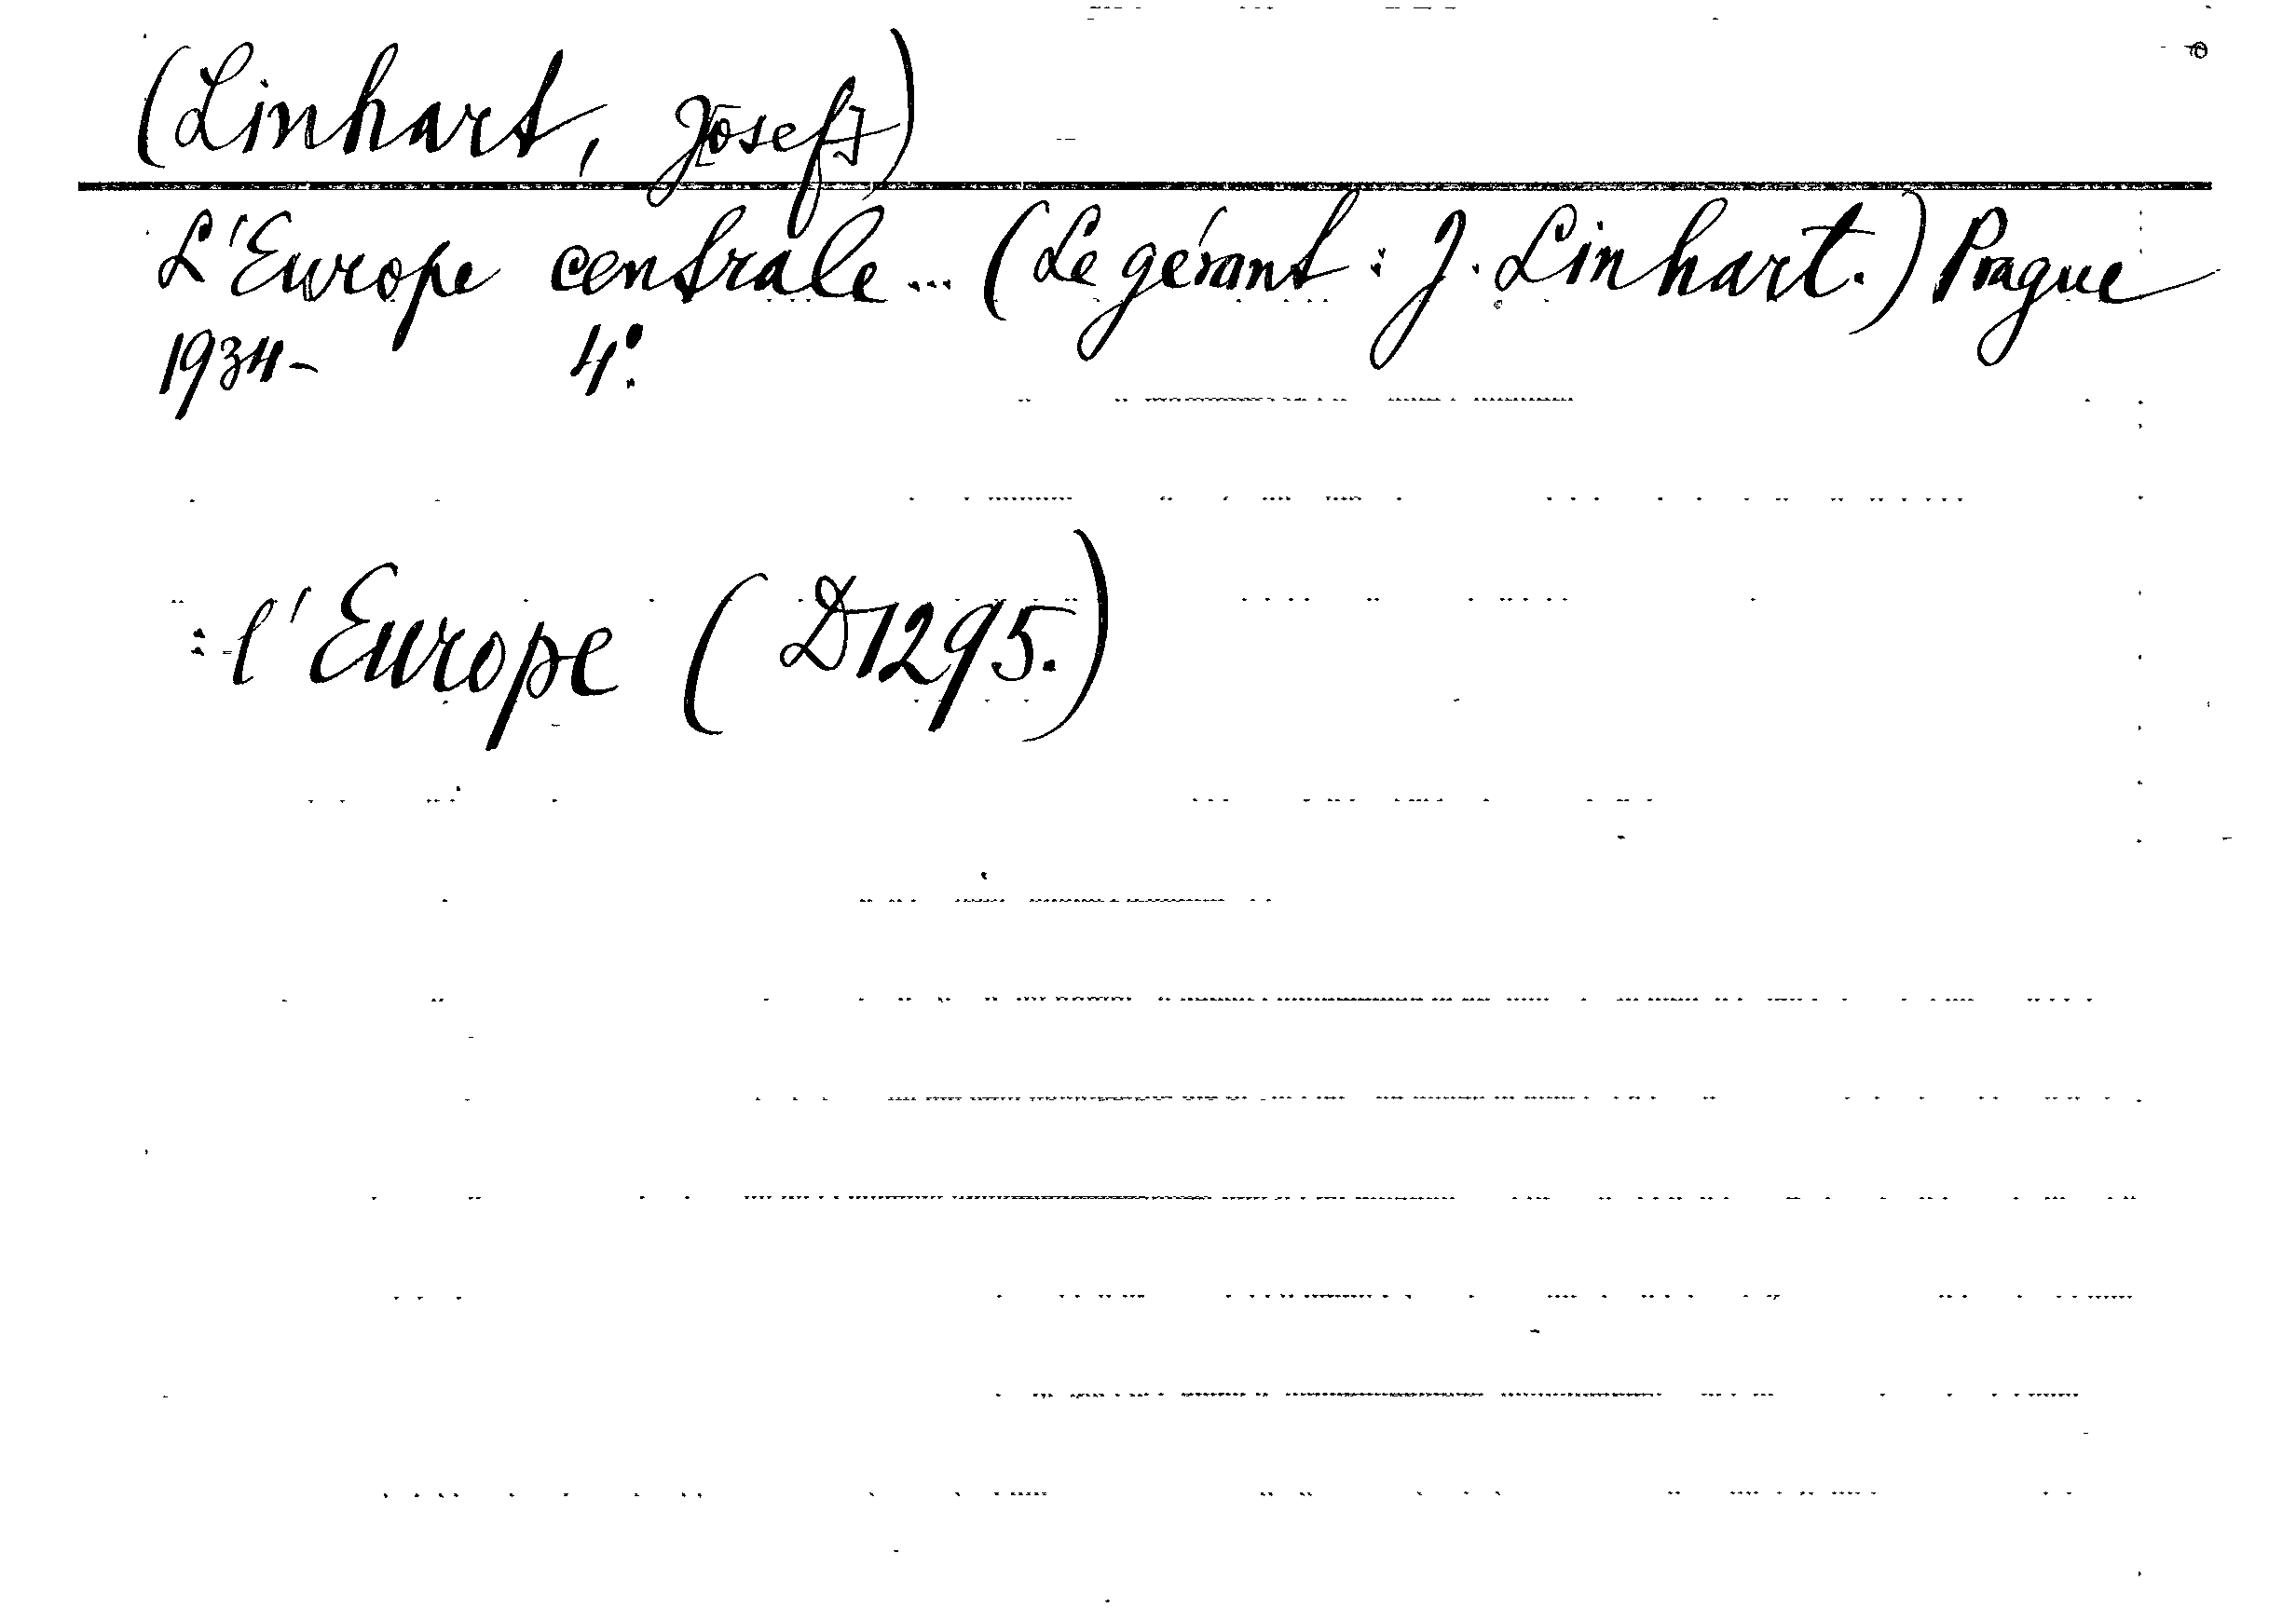 (Linhart, J[osef])
L'Europe centrale... (Le gérant: J. Linhart.) Prague
1934- 4º.
: l'Europe (D1295.)